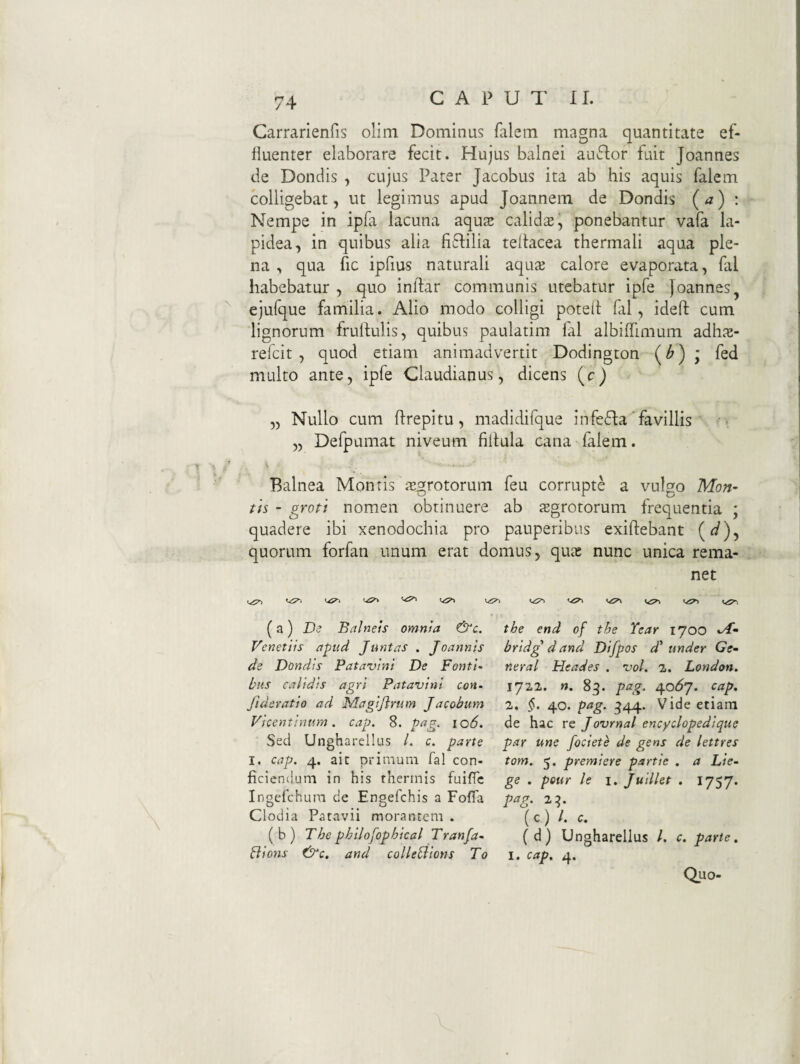 74 CAPUT II.
Carrarienſis olim Dominus ſalem magna quantitate ef-
fluenter elaborare fecit. Hujus balnei auctor fuit Joannes
de Dondis , cujus Pater Jacobus ita ab his aquis ſalem
colligebat, ut legimus apud Joannem de Dondis (a) :
Nempe in ipſa lacuna aquæ calidæ, ponebantur vaſa la-
pidea, in quibus alia fictilia teſtacea thermali aqua ple-
na , qua ſic ipſius naturali aquæ calore evaporata, ſal
habebatur , quo inſtar communis utebatur ipſe Joannes,
ejuſque familia. Alio modo colligi poteſt ſal, ideſt cum
lignorum fruſtulis, quibus paulatim ſal albiſſimum adhæ-
reſcit , quod etiam animadvertit Dodington (b) ; ſed
multo ante, ipſe Claudianus, dicens (c)
„ Nullo cum ſtrepitu, madidiſque infecta favillis
„ Deſpumat niveum fiſtula cana ſalem.
Balnea Montis ægrotorum ſeu corruptè a vulgo Mon-
tis - groti nomen obtinuere ab ægrotorum frequentia ;
quadere ibi xenodochia pro pauperibus exiſtebant (d),
quorum forſan unum erat domus, quæ nunc unica rema-
net
(a) De Balneis omnia &c.
Venetiis apud Juntas . Joannis
de Dondis Patavini De Fonti-
bus calidis agri Patavini con-
ſideratio ad Magiſtrum Jacobum
Vicentinum. cap. 8. pag. 106.
Sed Ungharellus l. c. parte
1. cap. 4. ait primum ſal con-
ficiendum in his thermis fuiſſe
Ingeſchum de Engeſchis a Foſſa
Clodia Patavii morantem .
(b) The philoſophical Tranſa-
ctions &c. and collections To
the end of the Year 1700 A-
bridg' d and Diſpos d' under Ge-
neral Heades . vol. 2. London.
1722. n. 83. pag. 4067. cap.
2. §. 40. pag. 344. Vide etiam
de hac re Jovrnal encyclopedique
par une ſocietè de gens de lettres
tom. 5. premiere partie . a Lie-
ge . pour le 1. Juillet . 1757.
pag. 23.
(c) l. c.
(d) Ungharellus l. c. parte.
1. cap. 4.
Quo-